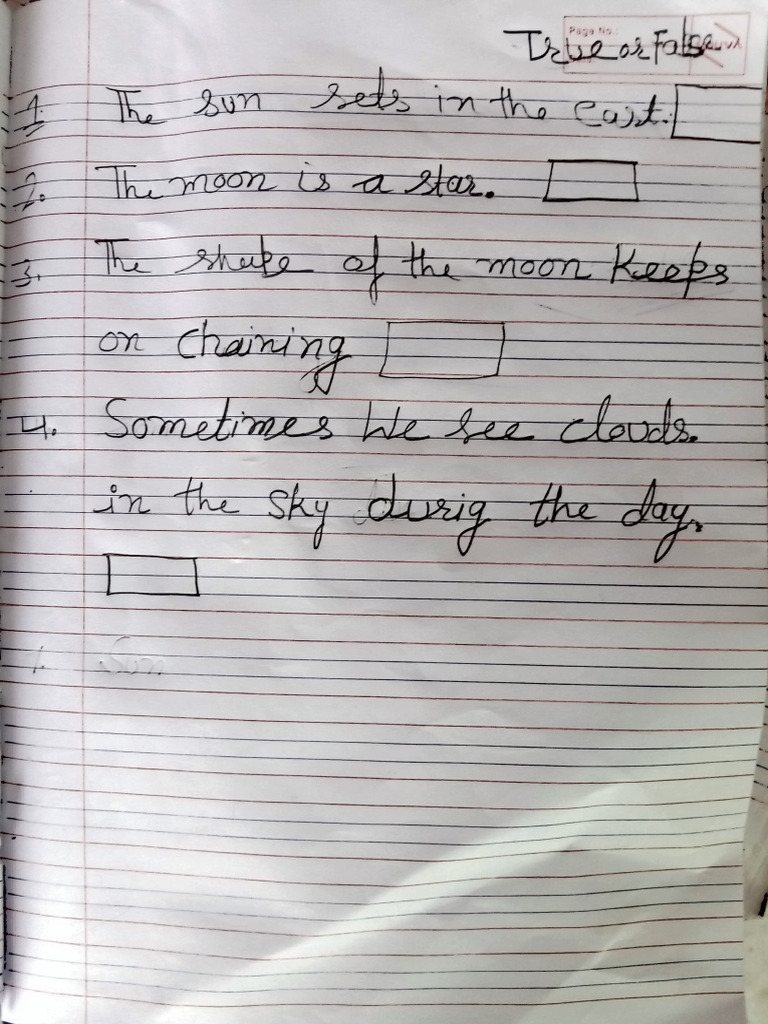 Page No.:
True or False
1. The sun sets in the East.
2. The moon is a star.
3. The shape of the moon Keeps
on chaining
4. Sometimes We see clouds.
in the sky durig the day.
1. Sun